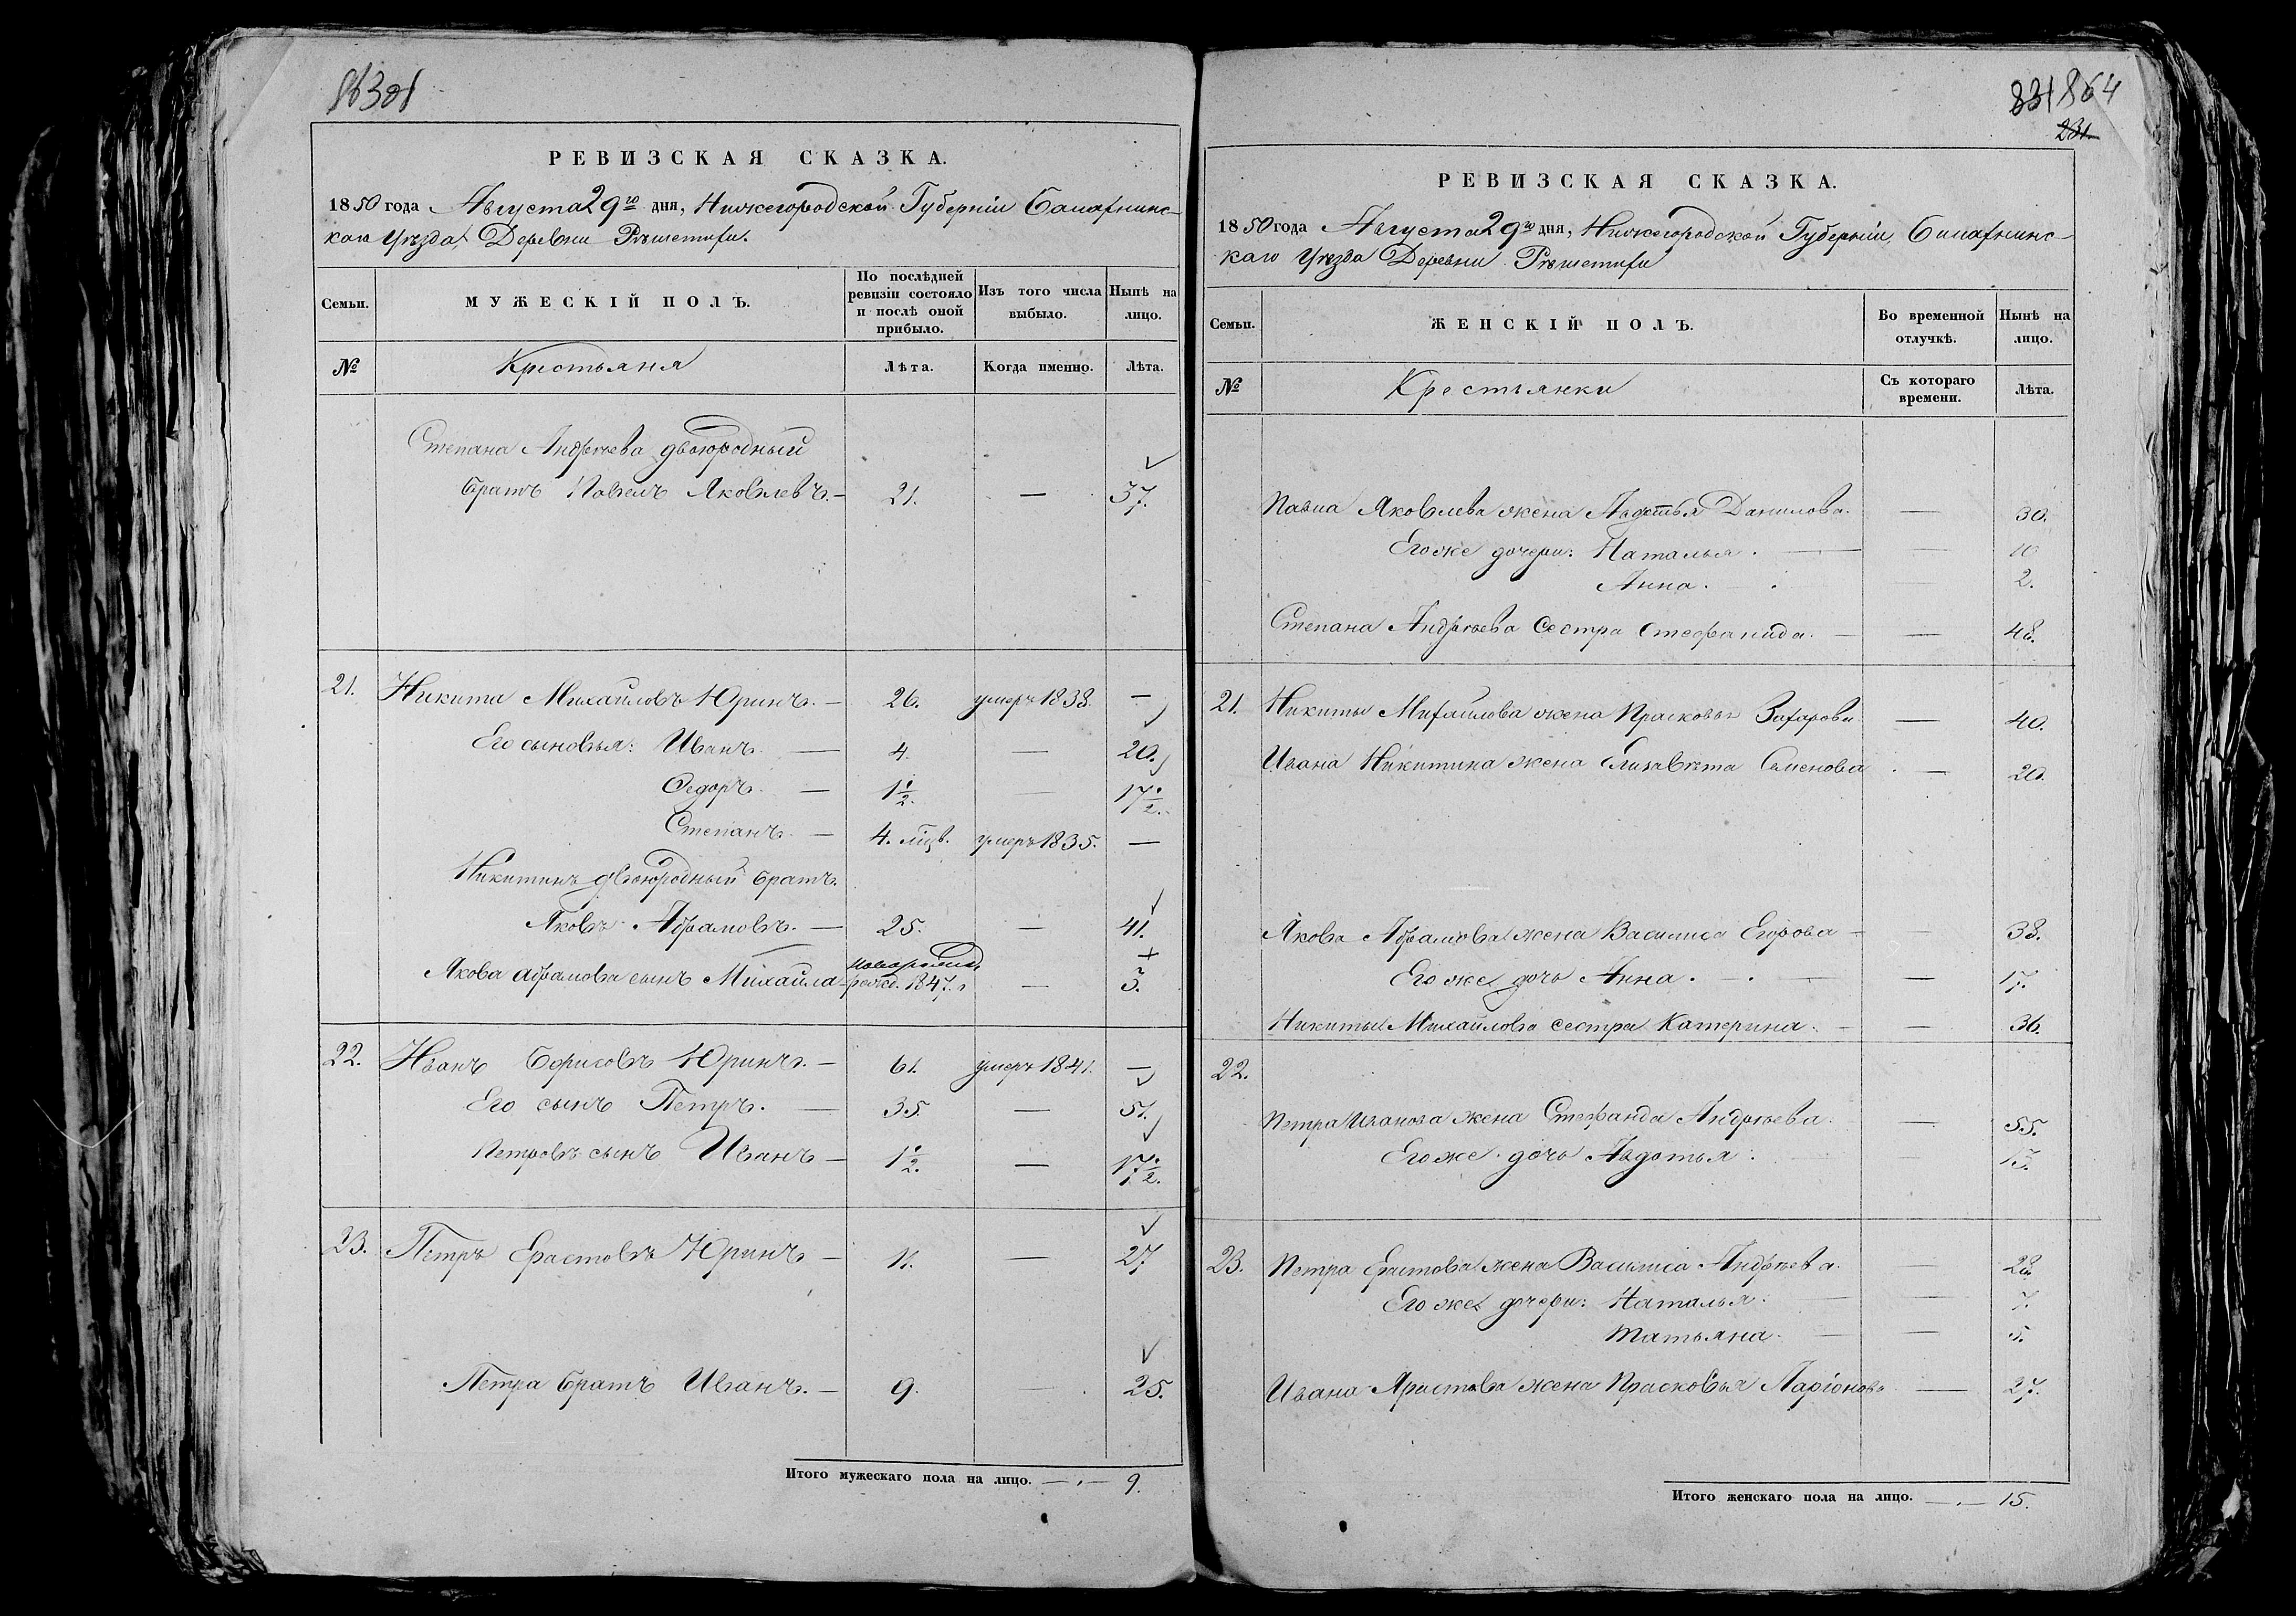 РЕВИЗСКАЯ СКАЗКА.
1850 года Августа 29го дня, Нижегородской Губерніи Балахнинс-
каго Уѣзда, Деревни Рѣшетихи.
Семьи.
МУЖЕСКІЙ ПОЛЪ.
По послѣдней ревизіи состояло и послѣ оной прибыло.
Изъ того числа выбыло.
Нынѣ на лицо.
№
Крестьяня
Лѣта.
Когда именно.
Лѣта.
Степана Андрѣева двоюродный
братъ Павелъ Яковлевъ. — 21. — 37.
21. Никита Михайловъ Юринъ. — 26. умеръ 1838. —
Его сыновья: Иванъ. — 4. — 20.
Ѳедоръ. — 1½. — 17½.
Степанъ. — 4. умеръ 1835. —
Никитинъ двоюродный братъ.
Яковъ Абрамовъ. — 25. — 41.
Якова Абрамова сынъ Михайла — рожд. 1847. — 3.
22. Иванъ Борисовъ Юринъ. — 61. умеръ 1841. —
Его сынъ Петръ. — 35. — 51.
Петровъ сынъ Иванъ — 1½. — 17½.
23. Петръ Ерастовъ Юринъ — 11. — 27
Петра братъ Иванъ. — 9. — 25.
Итого мужескаго пола на лицо. — 9.
831 864
231.
РЕВИЗСКАЯ СКАЗКА.
1850 года Августа 29го дня, Нижегородской Губерніи, Балахнинс-
каго Уѣзда Деревни Рѣшетихи
Семьи.
ЖЕНСКІЙ ПОЛЪ.
Во временной отлучкѣ.
Нынѣ на лицо.
№
Крестьянки
Съ котораго времени.
Лѣта.
Павла Яковлева жена Авдотья Данилова. — 30.
Его же дочери: Наталья. — 10
Анна. 2.
Степана Андрѣева сестра Стефанида. — 48.
21. Никиты Михайлова жена Прасковья Захарова — 40.
Ивана Никитина жена Елизавѣта Семенова — 20.
Якова Абрамова жена Василиса Егорова — 38.
Его же дочь Анна. — 17.
Никиты Михайлова сестра Катерина. — 36.
22.
Петра Иванова жена Стефанда Андрѣева. — 55.
Его же дочь Авдотья. — 13.
23. Петра Ерастова жена Василиса Андрѣева. — 28.
Его же дочери: Наталья. — 7.
Татьяна. — 5.
Ивана Арастова жена Прасковья Ларіонова — 27.
Итого женскаго пола на лицо. — 15.